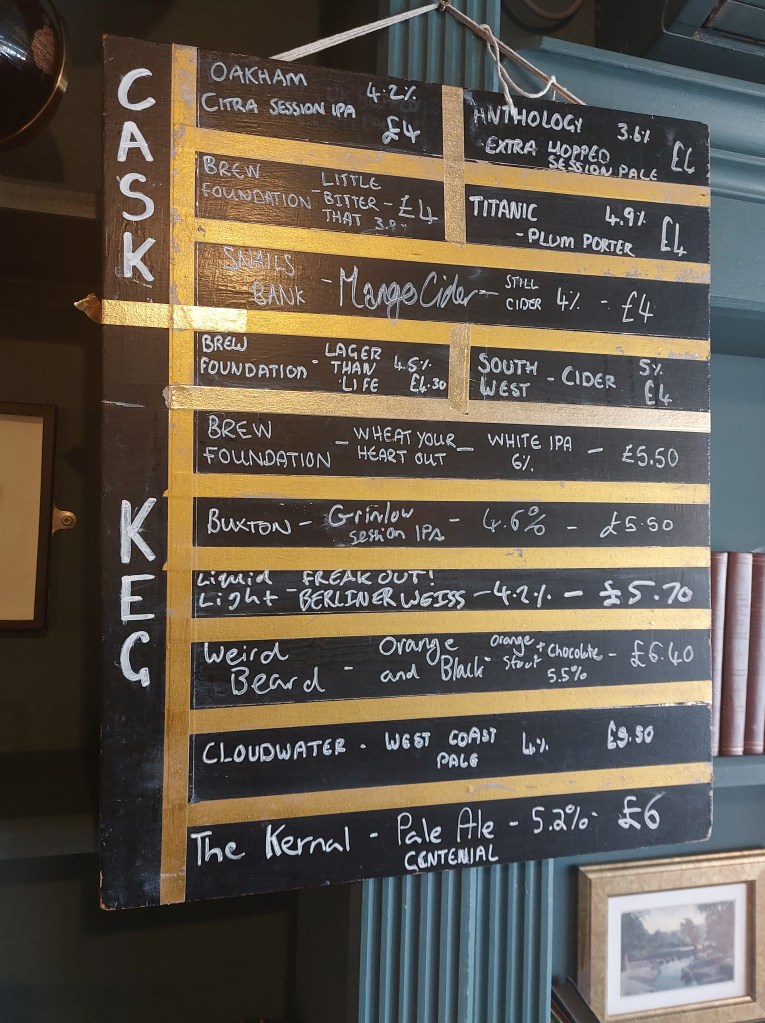 CASK
OAKHAM
CITRA SESSION IPA
4.2%
£4
ANTHOLOGY 3.6%
EXTRA HOPPED
SESSION PALE
£4
BREW
FOUNDATION
- LITTLE
BITTER
THAT 3.8%
- £4
TITANIC 4.9%
- PLUM PORTER
£4
SNAILS
BANK
- Mango Cider -
STILL
CIDER
4% - £4
KEG
BREW
FOUNDATION -
LAGER
THAN
LIFE
4.5%
£4.30
SOUTH
WEST
- CIDER
5%
£4
BREW
FOUNDATION
- WHEAT YOUR
HEART OUT -
WHITE IPA
6%
- £5.50
BUXTON - Grinlow
session IPA
- 4.6% - £5.50
Liquid
Light
- FREAK OUT!
- BERLINER WEISS - 4.2% - £5.70
Weird
Beard -
Orange
and Black -
Orange + Chocolate
stout
5.5%
- £6.40
CLOUDWATER - WEST COAST
PALE
4%
The Kernal - Pale Ale - 5.2% - £6
CENTENIAL